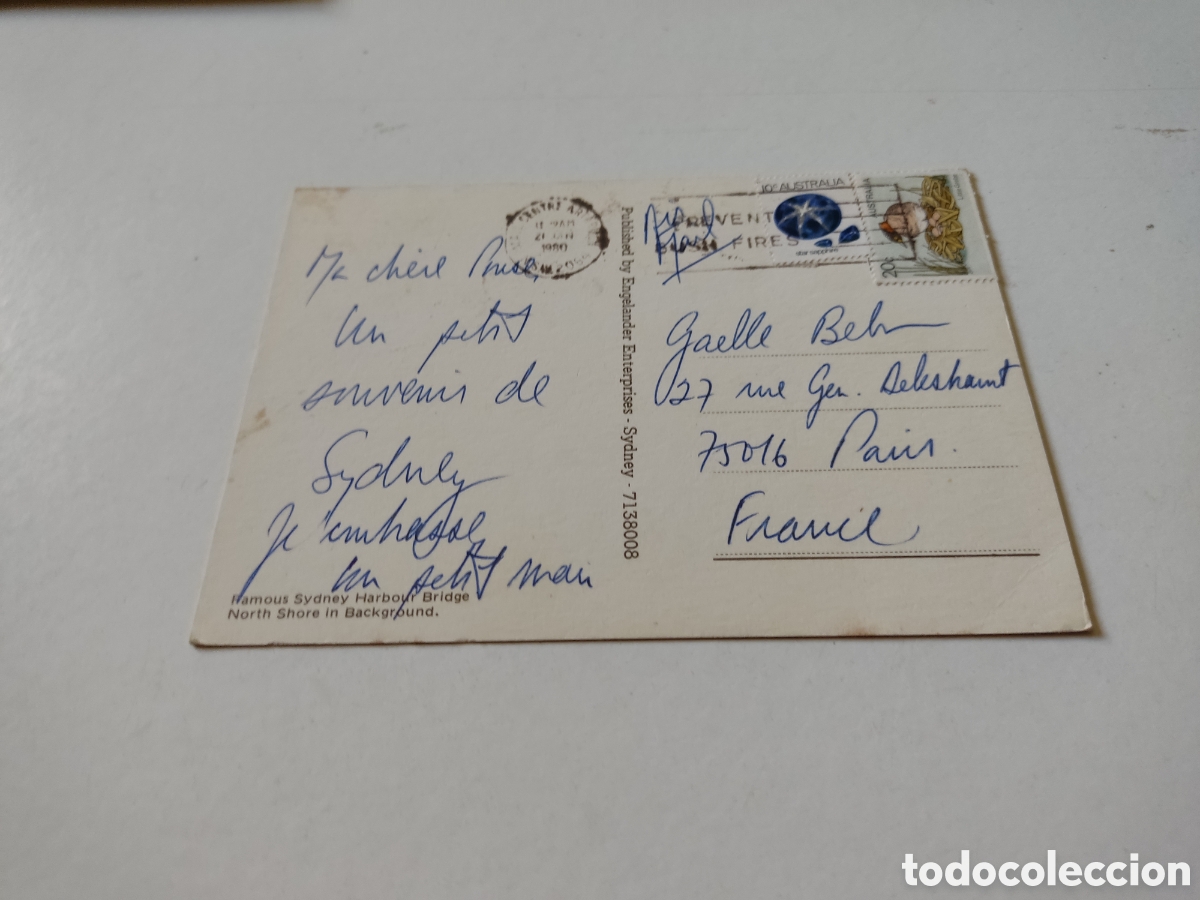 Ma chère
Un petit
souvenir de
Sydney
Je t'embrasse
Un petit
Famous Sydney Harbour Bridge
North Shore in Background.
Published by Engelander Enterprises - Sydney - 7138008
1980
PREVENT
FIRES
10c AUSTRALIA
star sapphire
AUSTRALIA
20c
Gaelle
27 rue Gen. Delestraint
75016 Paris.
France
todocoleccion